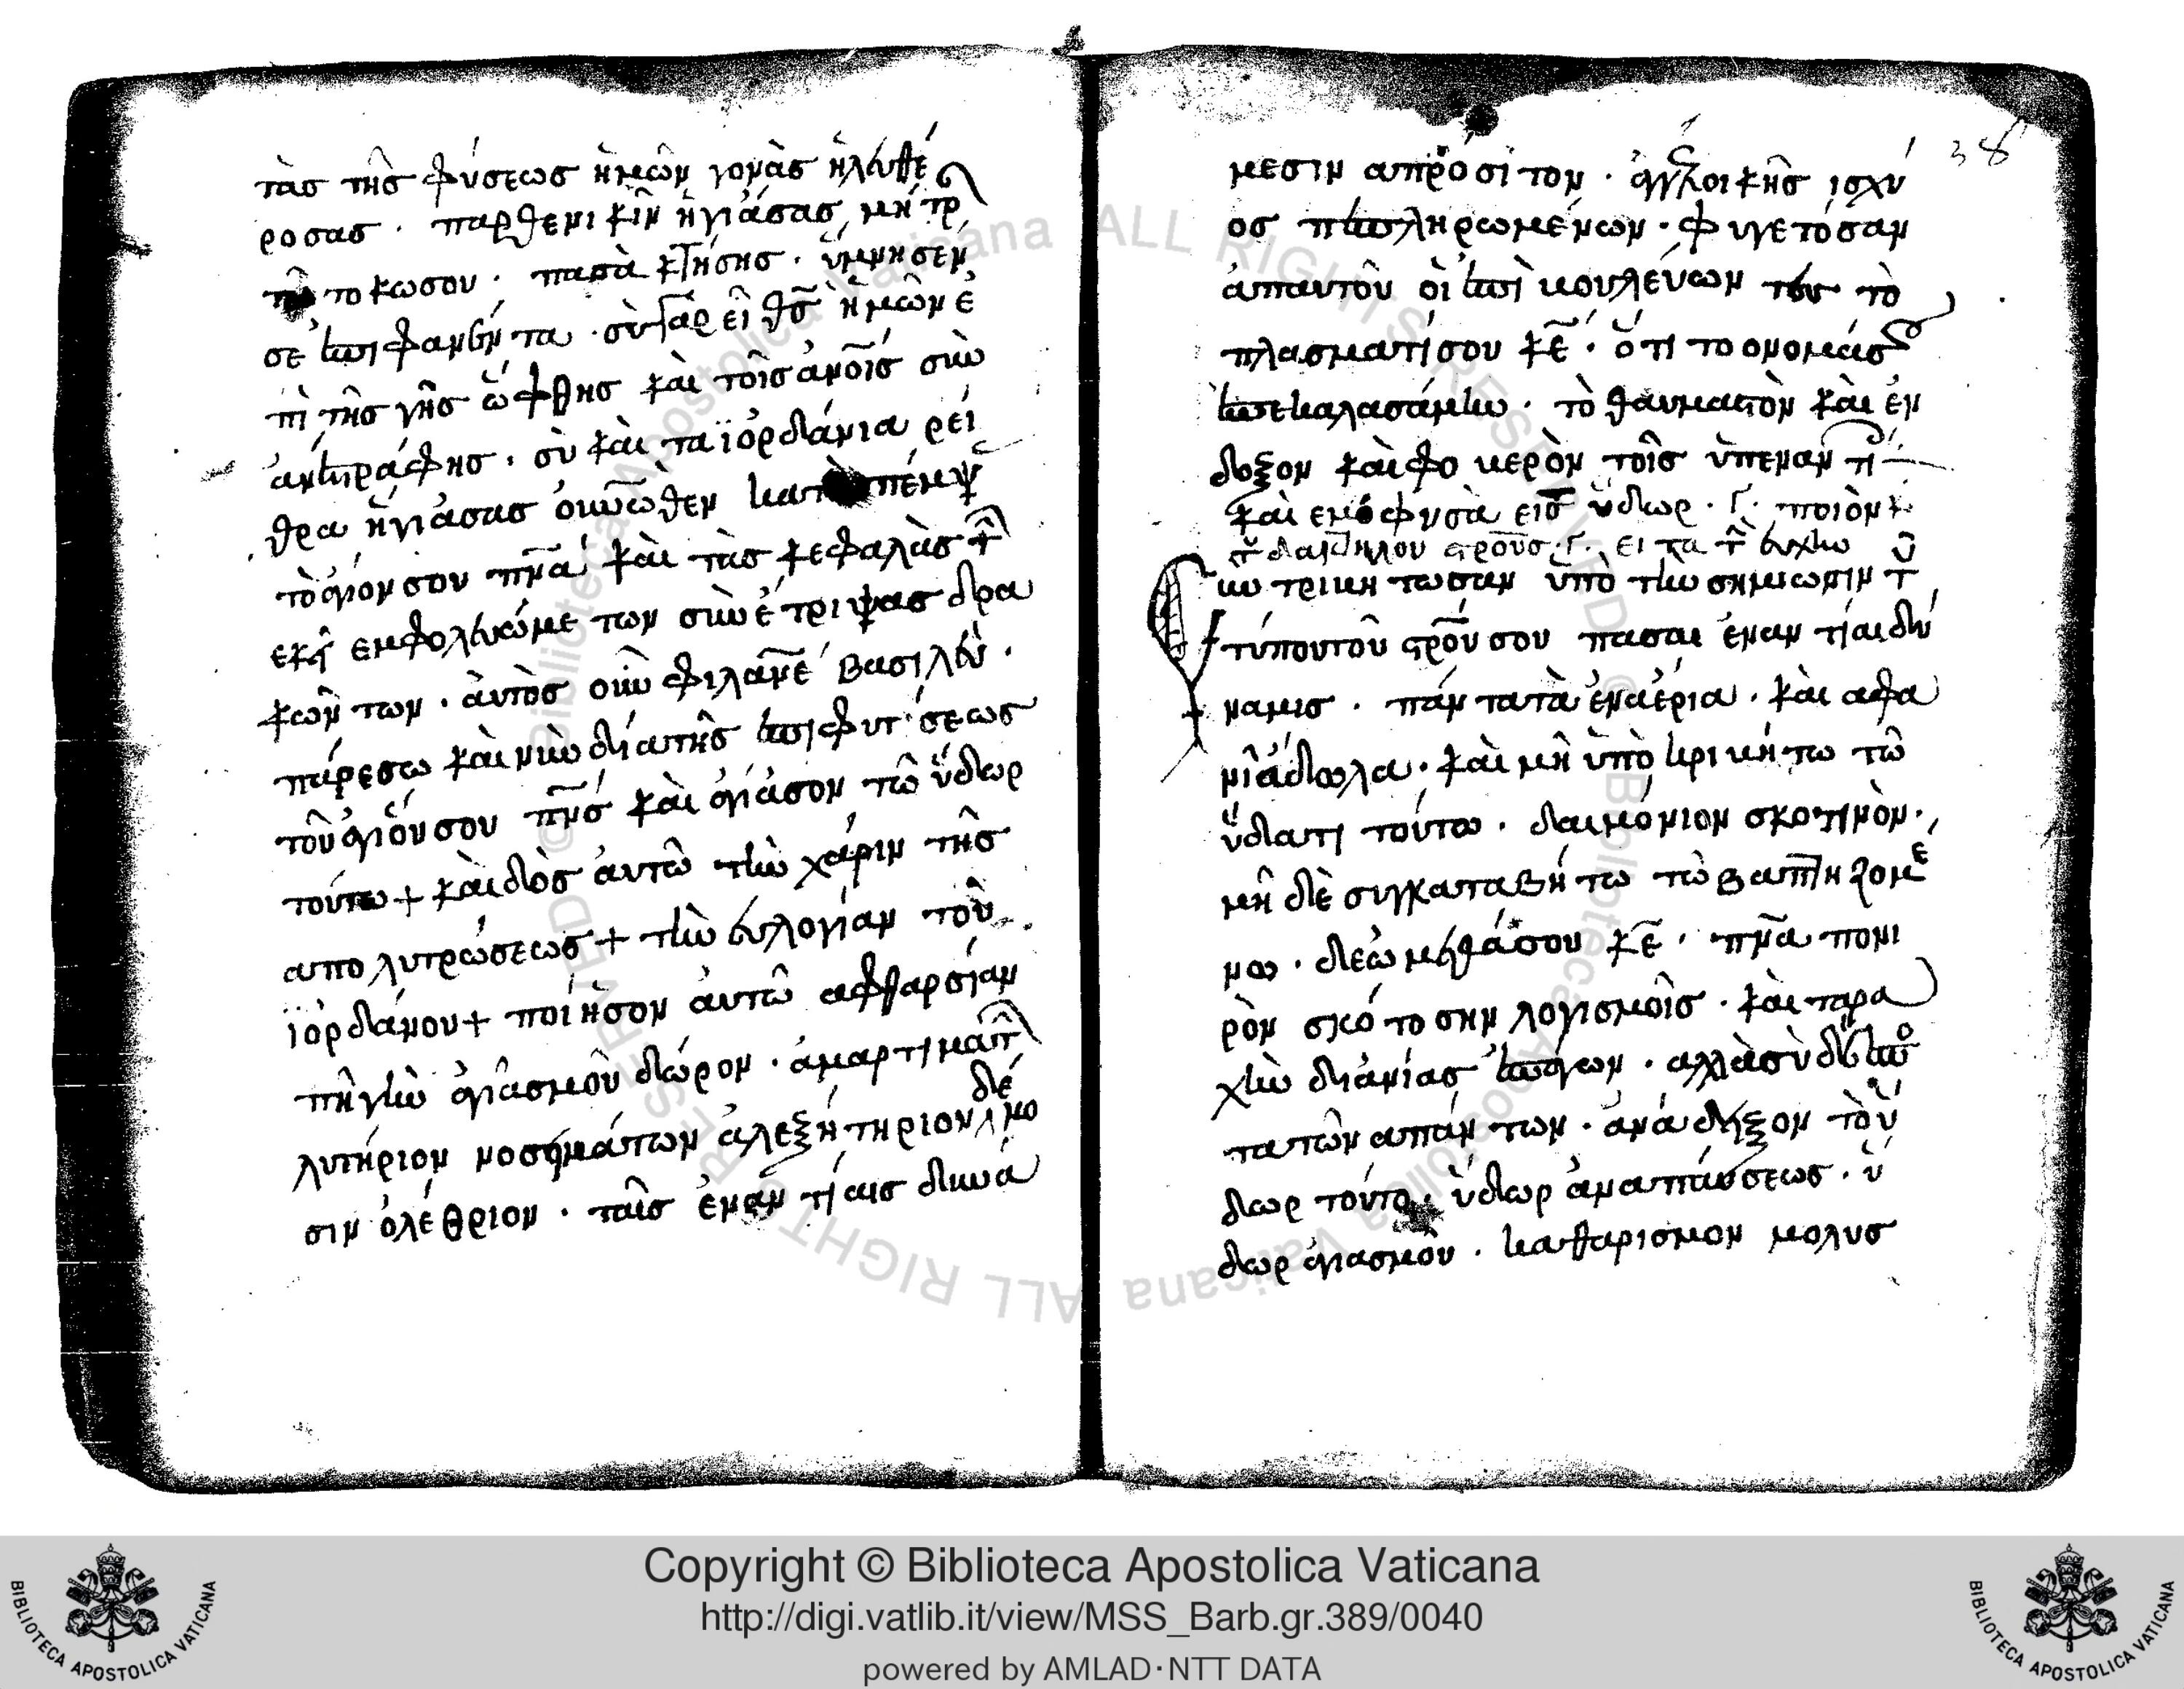 τὰσ τῆσ φύσεωσ ἡμῶν γονὰσ ἡλευθέ
ροσασ · παρθενικὴν ἡγιάσασ μήτρ
τοκωσου · πασὰ κτήσησ · ὕμνησεν
σε ἐπιφανέντα · σὺ γὰρ εἶ θσ̄ ἡμῶν ἐ
πὶ τῆσ γῆσ ὤφθησ καὶ τοῖσ ἀνοῖσ συν
ἀνεστράφησ · σὺ καὶ τα ϊορδάνια ρεί
θρα ἡγιάσασ οὐνωθεν κατα πέμψ
τὸ ἅγιον σου πνᾱ καὶ τὰσ κεφαλὰσ τ̑
εκεῖ εμφολευόμετων συνέτριψασ δρα
κωντων · ἀυτὸσ οὖν φιλανε βασιλεῦ ·
πάρεσω καὶ νῦν διὰ τῆσ ἐπιφυτήσεωσ
τοῦ ἁγίου σου πνσ̄ καὶ ἁγιάσον τῶ ὕδωρ
τούτω + καὶ δὸσ ἀυτῶ τὴν χάριν τῆσ
απολυτρώσεωσ + τὴν ἐυλογίαν τοῦ
ϊορδάνου + ποιήσον ἀυτῶ αφθαρσίαν
πηγὴν ἁγιασμοῦ δώρον · ἁμαρτιματ
λυτήριον νοσημάτων ἀλεξητήριον δέμο
σιν ὀλέθριον · ταῖσ ἐναντίαισ δυνά
38
μεσιν απρόσιτον · ἀγγελικῆσ ισχύ
οσ πεπληρωμένων · φυγετόσαν
ἀπαυτοῦ οἱ ἐπιβουλεύων τεσ τὸ
πλασματίσου κε̄ · ὅτι το ονομάσ
ἐπεκαλασάμην · τὸ θαυμαστὸν καὶ ἐν
δοξον καὶ φοβερὸν τοῖσ ὑπεναντί
καὶ εμφυσὰ εισ ὕδωρ · γ · ποιὸν
σταυροῦσ · γ · ευχὴν
συντριβητωσαν ὑπὸ τὴν σημείωσιν τ
τύπου τοῦ στροῦ σου πασαι ἐναντίαι δυ
ναμισ · πάντα τὰ ἐναέρια · καὶ αφα
νῖ ἄδωλα · καὶ μὴ ὑπὸκριβήτω τῶ
ὕδατι τούτω · δαιμόνιον σκοτινὸν ·
μὴ δὲ συγκαταβήτω τῶ βαπτηζομε
νω · δεώμεθάσου κε̄ · πνᾱ πονι
ρὸν σκότοσην λογισμοῖσ · καὶ ταρα
χὴν διανίασ ἐπάγων · αλλὰ σὺ δέσπο
τα τῶν απάντων · ἀνάδειξον τὸ ὕ
δωρ τούτο · ὑδωρ ἀναπάυσεωσ · ὑ
δωρ ἁγιασμοῦ · καθαρισμον μολυσ
Copyright © Biblioteca Apostolica Vaticana
http://digi.vatlib.it/view/MSS_Barb.gr.389/0040
powered by AMLAD·NTT DATA
BIBLIOTECA APOSTOLICA VATICANA
BIBLIOTECA APOSTOLICA VATICANA